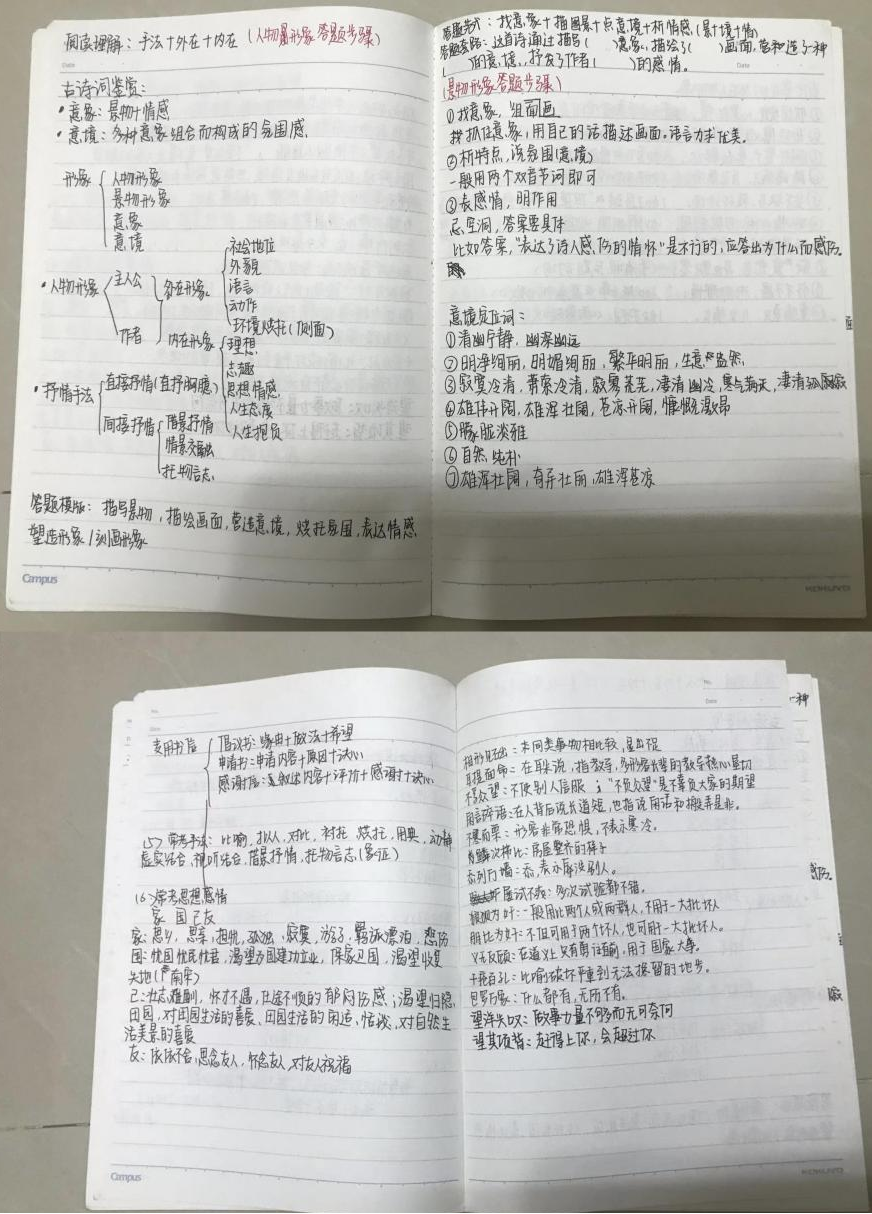 阅读理解：手法+外在+内在（人物形象答题步骤）
Date
古诗词鉴赏：
·意象：景物+情感
·意境：多种意象组合而构成的氛围感
形象 人物形象
景物形象
意象
意境
·人物形象 主人公 外在形象 社会地位
外貌
语言
动作
环境烘托（侧面）
作者 内在形象 理想
志趣
思想情感
人生态度
人生抱负
·抒情手法 直接抒情（直抒胸臆）
间接抒情 借景抒情
情景交融
托物言志
答题模版：描写景物，描绘画面，营造意境，烘托氛围，表达情感
塑造形象/刻画形象
Campus
答题步介：找意象+描图景+点意境+析情感（景+境+情）
答题套路：这首诗通过描写（ ）意象，描绘了（ ）画面，营造了一种
（ ）的意境，抒发了作者（ ）的感情。
Date
（景物形象答题步骤）
①找意象，组画面
抓住意象，用自己的话描述画面。语言力求优美。
②析特点，说氛围（意境）
一般用两个双音节词即可
③表感情，明作用
忌空洞，答案要具体
比如答案，“表达了诗人感伤的情怀”是不行的，应答出为什么而感伤。
意境定位词：
①清幽宁静，幽深幽远
②明净绚丽，明媚绚丽，繁华明丽，生意盎然
③寂寞冷清，萧索冷清，寂寥荒芜，凄清幽冷，寒气满天，凄清孤寂
④雄伟开阔，雄浑壮阔，苍凉开阔，慷慨激昂
⑤朦胧淡雅
⑥自然纯朴
⑦雄浑壮阔，奇异壮丽，雄浑苍凉
No.
Date
专用书信 倡议书：缘由+做法+希望
申请书：申请内容+原因+决心
感谢信：叙述内容+评价+感谢+决心
(5)常考手法：比喻，拟人，对比，衬托，烘托，用典，动静
虚实结合，视听结合，借景抒情，托物言志（象征）
(6)常考思想感情
家 国 己 友
家：思乡，思亲，担忧，孤独，寂寞，游子，羁旅漂泊，悲伤
国：忧国忧民忧君，渴望为国建功立业，保家卫国，渴望收复
失地（南宋）
己：壮志难酬，怀才不遇，仕途不顺的郁闷伤感；渴望归隐
田园，对田园生活的喜爱、田园生活的闲适，恬淡，对自然生
活美景的喜爱
友：依依不舍，思念友人，怀念友人，对友人祝福
Campus
No.
Date
一种
相形见绌：不同类事物相比较，显出不足
耳提面命：在耳朵说，指教导，多形容长辈的教导热心恳切
不孚众望：不使别人信服；“不负众望”是不辜负大家的期望
在人背后说长道短，也指说闲话和搬弄是非。
不寒而栗：形容非常恐惧，不表示寒冷。
鳞次栉比：房屋整齐的样子
忝列门墙：忝，表示辱没别人。
屡试不爽：多次试验都不错。
狼狈为奸：一般用比两个人或两群人，不用于一大批坏人
朋比为奸：不但可用于两个坏人，也可用一大批坏人。
义无反顾：在道义上只有勇往直前，用于国家大事。
千疮百孔：比喻破坏严重到无法保留的地步。
包罗万象：什么都有，无所不有。
望洋兴叹：做事力量不够而无可奈何
望其项背：赶得上你，会超过你
感伤。